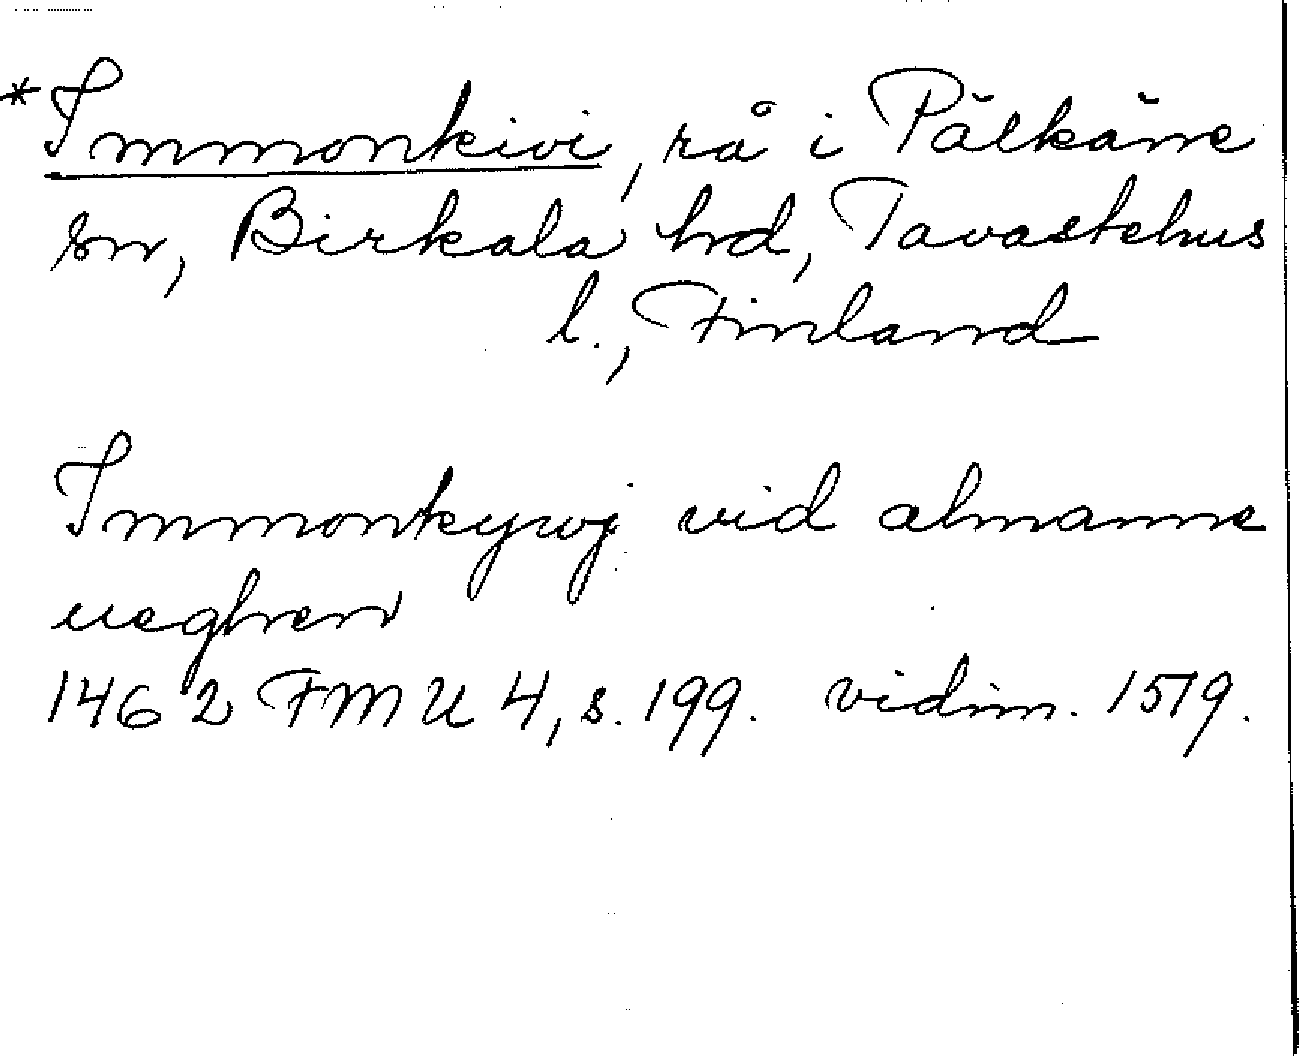 *Immonkivi, rå i Pälkäne
sn, Birkala hd, Tavastehus
l., Finland
Immonkywj vid almanne
ueghen
1462 FMU 4, s. 199. vidim. 1519.